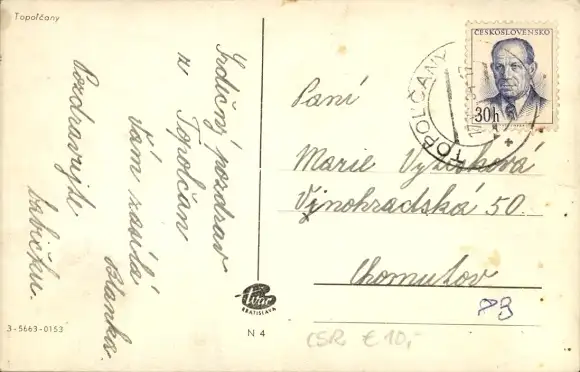 Topoľčany
Srdečný pozdrav
z Topolčan
vám zasílá
Blanka.
Pozdravujte
babičku.
3-5663-0153
Tvar
BRATISLAVA
N 4
ČESKOSLOVENSKO
30h
TOPOĽČANY
Paní
Marie
Vinohradská 50.
Chomutov
ČSR € 10,-